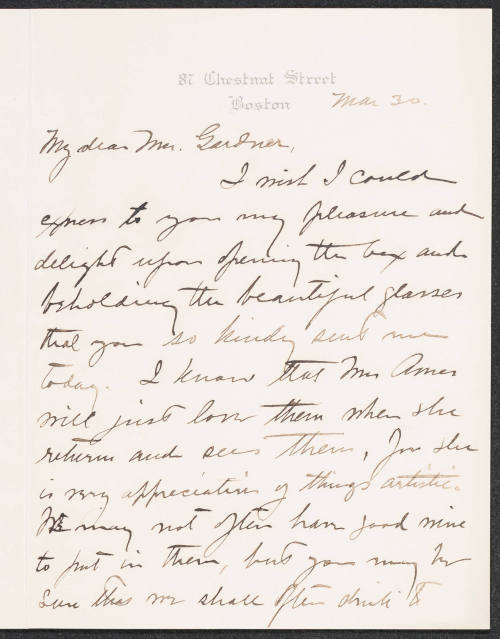 87 Chestnut Street
Boston
Mar 30.
My dear Mrs. Gardner,
I wish I could
express to you my pleasure and
delight upon opening the box and
beholding the beautiful glasses
that you so kindly sent me
today. I know that Mrs Ames
will just love them when she
returns and sees them, for she
is very appreciative of things artistic.
We may not often have good wine
to put in them, but you may be
sure that we shall often drink to